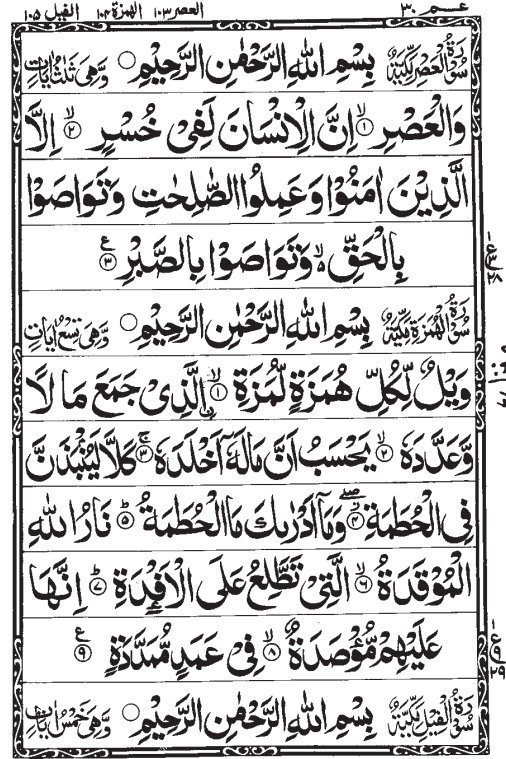 عـم ٣٠ الهمزة ١٠٤ العصر ١٠٣ الفيل ١٠٥
سُوْرَةُ الْعَصْرِ مَكِّيَّةٌ بِسْمِ اللّٰهِ الرَّحْمٰنِ الرَّحِيْمِ ○ وَهِىَ ثَلٰثُ اٰيَاتٍ
وَالْعَصْرِ ۙ﴿١﴾ اِنَّ الْاِنْسَانَ لَفِىْ خُسْرٍ ۙ﴿٢﴾ اِلَّا
الَّذِيْنَ اٰمَنُوْا وَعَمِلُوا الصّٰلِحٰتِ وَتَوَاصَوْا
بِالْحَقِّ ۙ۬ وَتَوَاصَوْا بِالصَّبْرِ ﴿٣﴾ ع
ع ٣ ٢٨
سُوْرَةُ الْهُمَزَةِ مَكِّيَّةٌ بِسْمِ اللّٰهِ الرَّحْمٰنِ الرَّحِيْمِ ○ وَهِىَ تِسْعُ اٰيَاتٍ
وَيْلٌ لِّكُلِّ هُمَزَةٍ لُّمَزَةٍ ۙ﴿١﴾ اۨلَّذِىْ جَمَعَ مَالًا
وَّعَدَّدَهٗ ۙ﴿٢﴾ يَحْسَبُ اَنَّ مَالَهٗۤ اَخْلَدَهٗ ۚ﴿٣﴾ كَلَّا لَيُنْۢبَذَنَّ
فِى الْحُطَمَةِ ۖ﴿٤﴾ وَمَاۤ اَدْرٰىكَ مَا الْحُطَمَةُ ؕ﴿٥﴾ نَارُ اللّٰهِ
الْمُوْقَدَةُ ۙ﴿٦﴾ الَّتِىْ تَطَّلِعُ عَلَى الْاَفْـِٕدَةِ ؕ﴿٧﴾ اِنَّهَا
عَلَيْهِمْ مُّؤْصَدَةٌ ۙ﴿٨﴾ فِىْ عَمَدٍ مُّمَدَّدَةٍ ﴿٩﴾ ع
ع ٩ ٢٩
سُوْرَةُ الْفِيْلِ مَكِّيَّةٌ بِسْمِ اللّٰهِ الرَّحْمٰنِ الرَّحِيْمِ ○ وَهِىَ خَمْسُ اٰيَاتٍ